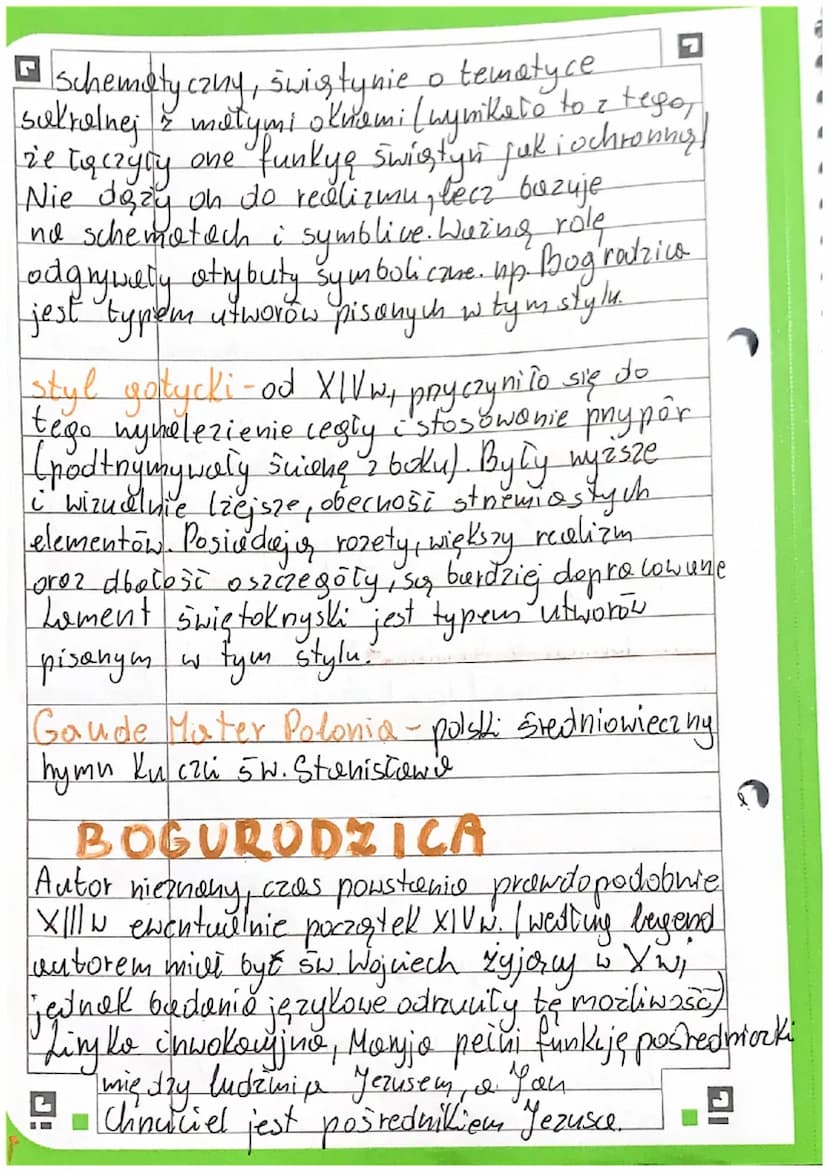 schematyczny, świątynie o tematyce
sakralnej z małymi oknami (wynikało to z tego,
że łączyły one funkyę świątyń jak i ochronną)
Nie dąży on do realizmu, lecz bazuje
na schematach i symblice. Ważną rolę
odgrywały atrybuty symboliczne. np. Bogradzica
jest typem utworów pisanych w tym stylu.
styl gotycki - od XIV w, przyczyniło się do
tego wynalezienie cegły i stosowanie przypór
(podtrzymywały ścianę z boku). Były wyższe
i wizualnie lżejsze, obecność strzemiastych
elementów. Posiadają rozety, większy realizm
oraz dbałość o szczegóły, są bardziej dopracowane
Lament świętokrzyski jest typem utworów
pisanym w tym stylu.
Gaude Mater Polonia - polski średniowieczny
hymn ku czci św. Stanisława
BOGURODZICA
Autor nieznany, czas powstania prawdopodobnie
XIII w ewentualnie początek XIV w. (według legend
autorem miał być św. Wojciech żyjący w X w,
jednak badania językowe odrzuciły tę możliwość)
Liryka inwokacyjna, Maryja pełni funkję pośredniczki
między ludźmi a Jezusem, a Jan
Chrzciciel jest pośrednikiem Jezusa.